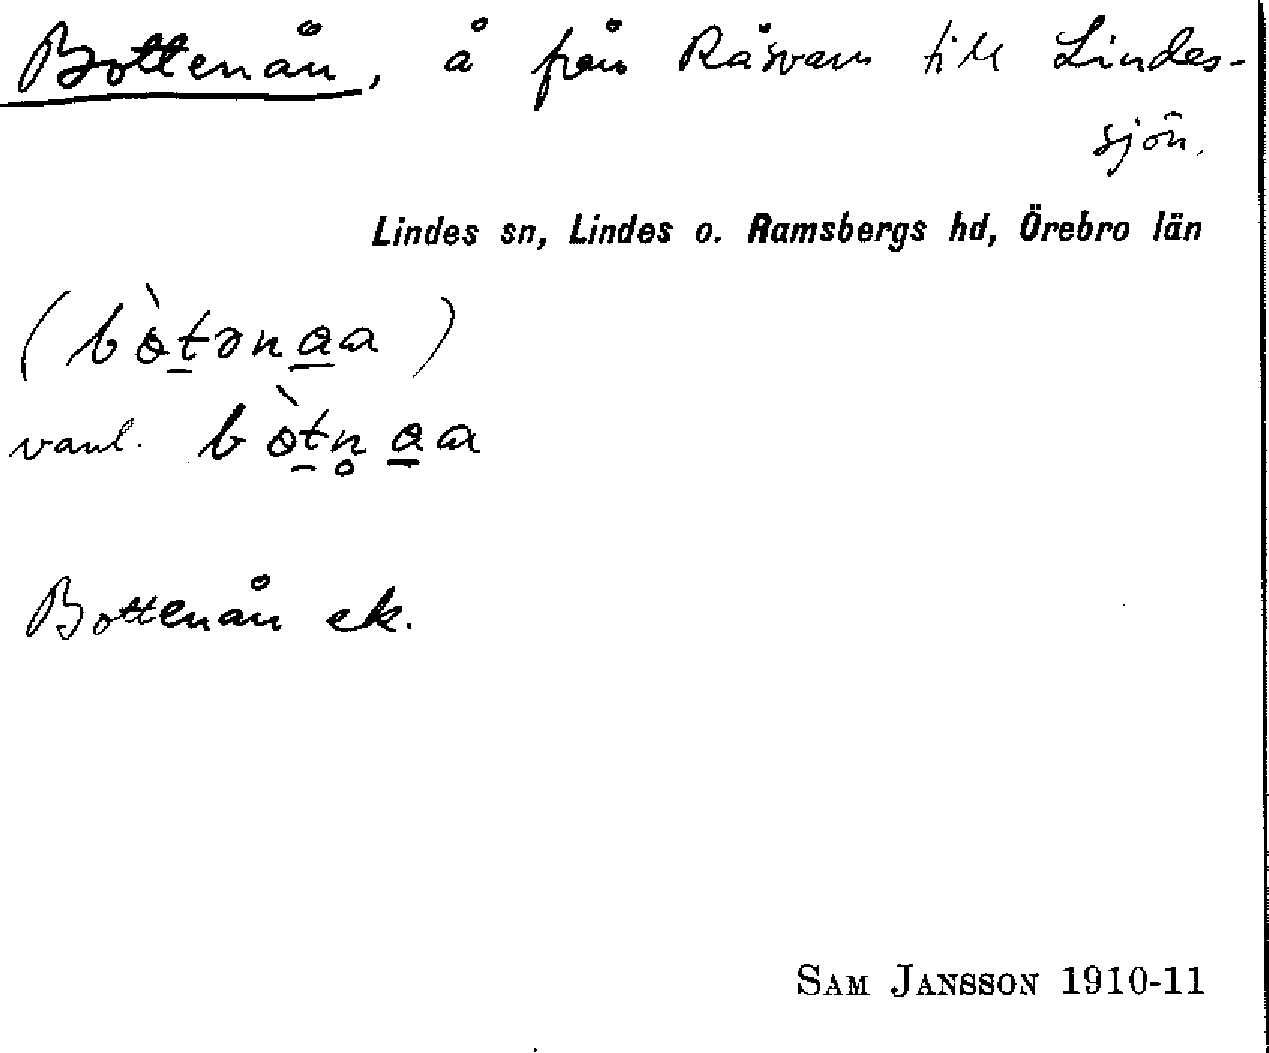 Bottenån, å från Råsvaln till Lindes-
sjön.
Lindes sn, Lindes o. Ramsbergs hd, Örebro län
vanl.
Bottenån ek.
SAM JANSSON 1910-11